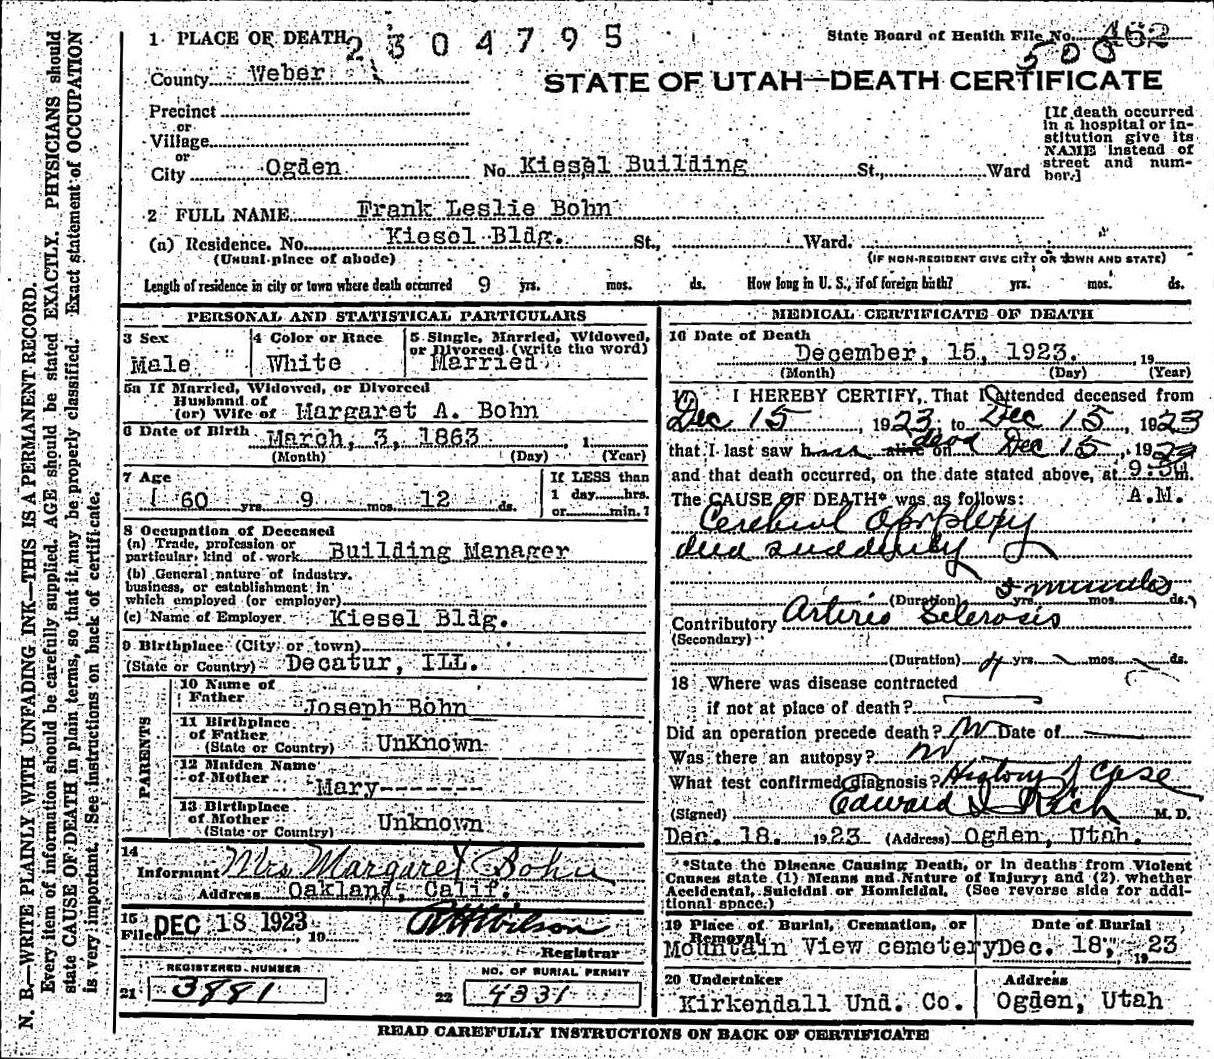 1 PLACE OF DEATH 2304795 State Board of Health File No. 462
500
County Weber STATE OF UTAH—DEATH CERTIFICATE
Precinct
or
Village
or
City Ogden No Kiesel Building St., Ward
[If death occurred
in a hospital or in-
stitution give its
NAME instead of
street and num-
ber.]
2 FULL NAME Frank Leslie Bohn
(a) Residence. No. Kiesel Bldg. St., Ward.
(Usual place of abode) (IF NON-RESIDENT GIVE CITY OR TOWN AND STATE)
Length of residence in city or town where death occurred 9 yrs. mos. ds. How long in U. S., if of foreign birth? yrs. mos. ds.
PERSONAL AND STATISTICAL PARTICULARS
3 Sex 4 Color or Race 5 Single, Married, Widowed,
or Divorced (write the word)
Male White Married
5a If Married, Widowed, or Divorced
Husband of
(or) Wife of Margaret A. Bohn
6 Date of Birth March, 3, 1863 , 1
(Month) (Day) (Year)
7 Age If LESS than
1 day hrs.
or min.?
60 yrs. 9 mos. 12 ds.
8 Occupation of Deceased
(a) Trade, profession or
particular kind of work Building Manager
(b) General nature of industry,
business, or establishment in
which employed (or employer)
(c) Name of Employer Kiesel Bldg.
9 Birthplace (City or town)
(State or Country) Decatur, ILL.
PARENTS
10 Name of
Father Joseph Bohn
11 Birthplace
of Father
(State or Country) UnKnown
12 Maiden Name
of Mother Mary-------
13 Birthplace
of Mother
(State or Country) Unknown
14
Informant Mrs Margaret Bohn
Address Oakland, Calif.
15
Filed DEC 18 1923, 19 Wilson
Registrar
REGISTERED NUMBER NO. OF BURIAL PERMIT
21 3881 22 4331
MEDICAL CERTIFICATE OF DEATH
16 Date of Death
December, 15, 1923. , 19
(Month) (Day) (Year)
17 I HEREBY CERTIFY, That I attended deceased from
Dec 15, 1923, to Dec 15, 1923
that I last saw h alive dead on Dec 15, 1923
and that death occurred, on the date stated above, at 9:30 m.
The CAUSE OF DEATH* was as follows: A.M.
Cerebral Apoplexy
died suddenly
(Duration) 5 minutes yrs. mos. ds.
Contributory Arterio Sclerosis
(Secondary)
(Duration) 4 yrs. mos. ds.
18 Where was disease contracted
if not at place of death?
Did an operation precede death? No Date of
Was there an autopsy? no
What test confirmed diagnosis? History of Case
(Signed) Edward I Rich M. D.
Dec. 18. 1923 (Address) Ogden, Utah.
*State the Disease Causing Death, or in deaths from Violent
Causes state (1) Means and Nature of Injury; and (2) whether
Accidental, Suicidal or Homicidal. (See reverse side for addi-
tional space.)
19 Place of Burial, Cremation, or
Removal Date of Burial
Mountain View cemetery Dec. 18, 1923
20 Undertaker Address
Kirkendall Und. Co. Ogden, Utah
READ CAREFULLY INSTRUCTIONS ON BACK OF CERTIFICATE
N. B.—WRITE PLAINLY WITH UNFADING INK—THIS IS A PERMANENT RECORD.
Every item of information should be carefully supplied. AGE should be stated EXACTLY. PHYSICIANS should
state CAUSE OF DEATH in plain terms, so that it may be properly classified. Exact statement of OCCUPATION
is very important. See instructions on back of certificate.